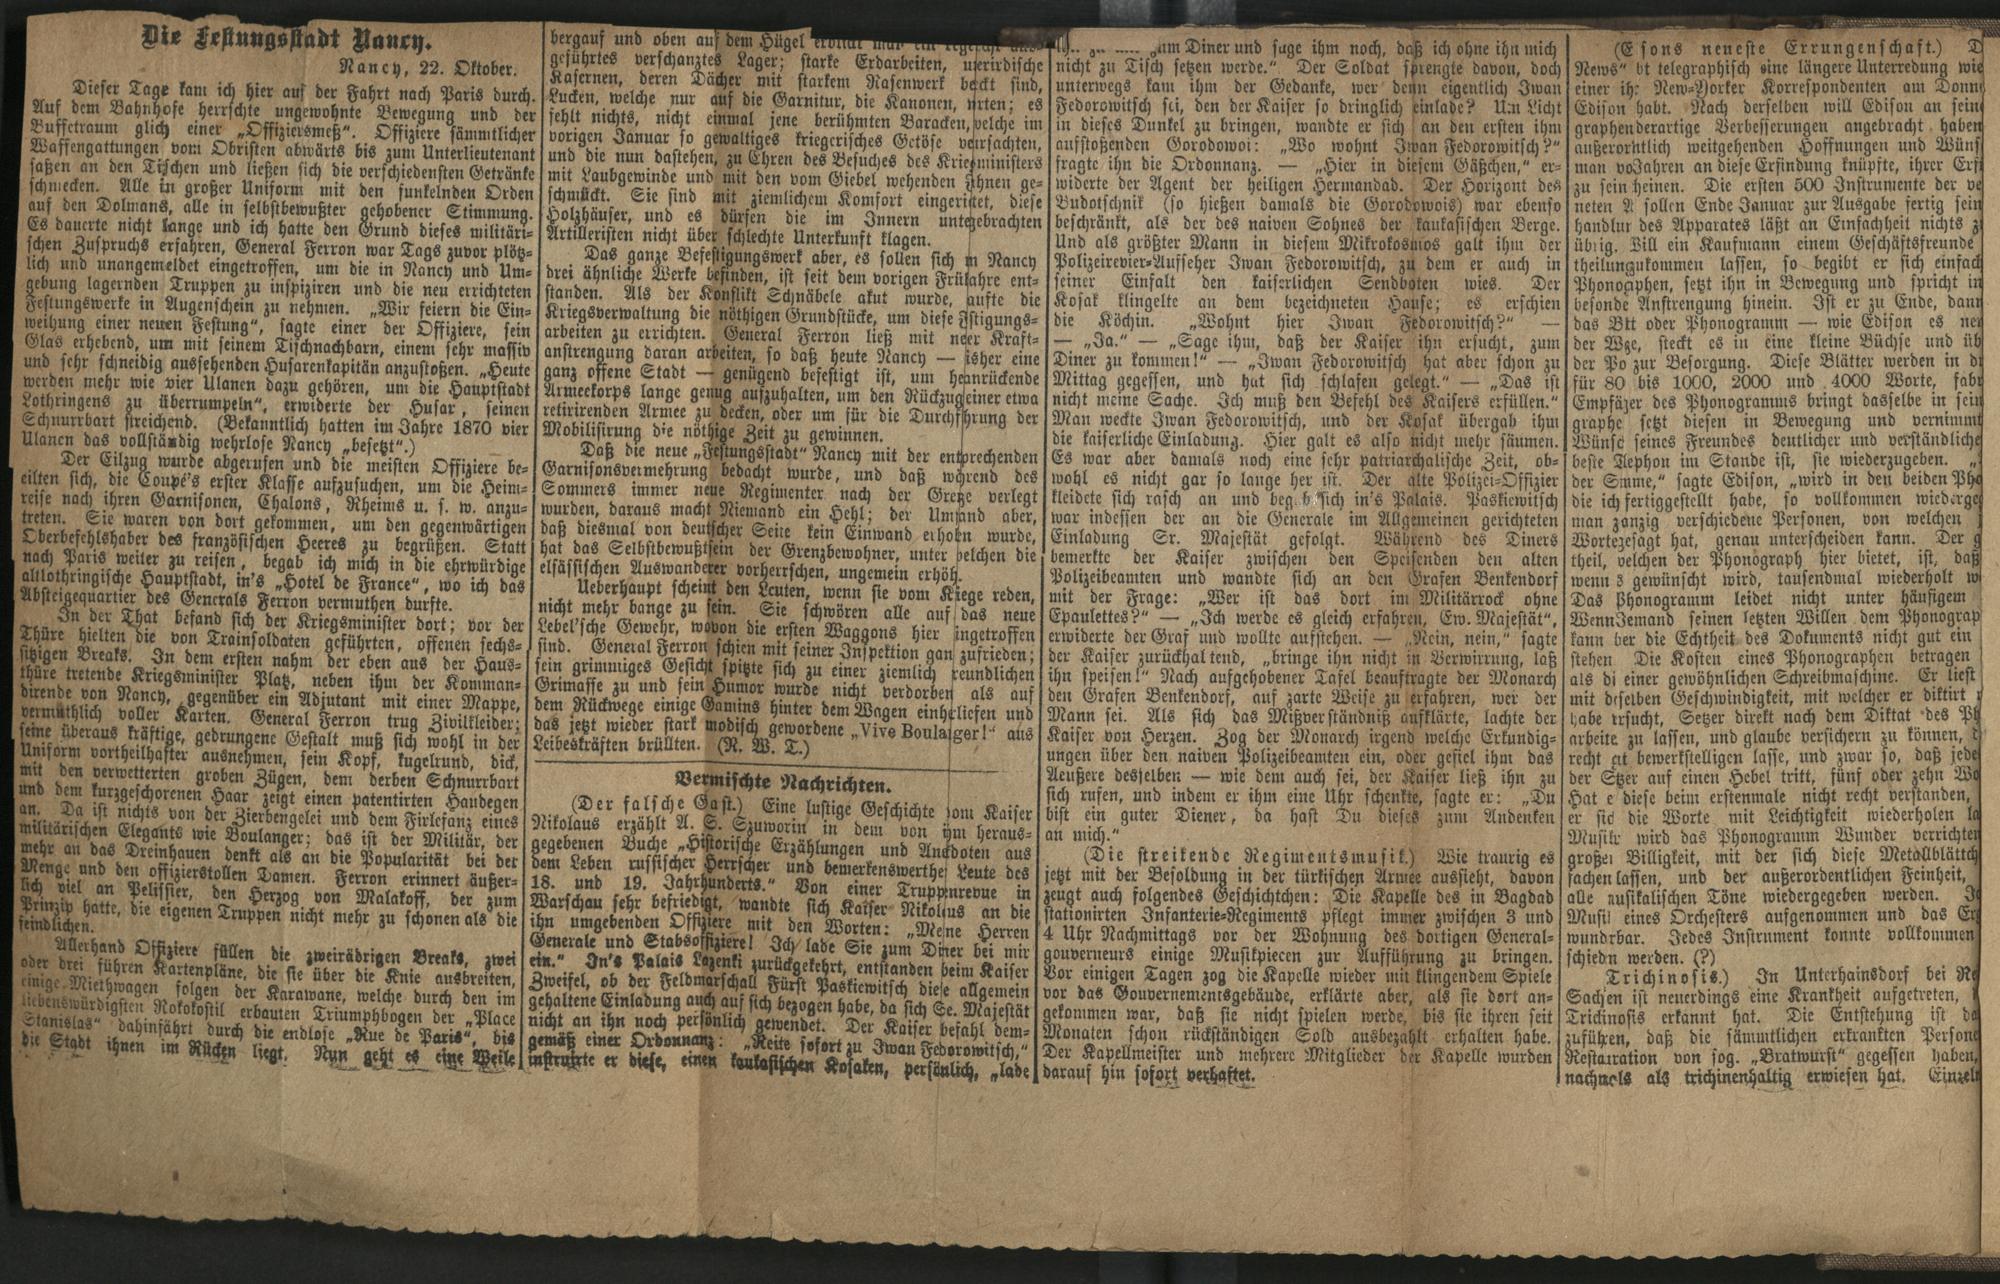 Die Festungsstadt Nancy.
Nancy, 22. Oktober.
Dieser Tage kam ich hier auf der Fahrt nach Paris durch.
Auf dem Bahnhofe herrschte ungewohnte Bewegung und der
Buffetraum glich einer „Offiziersmeß“. Offiziere sämmtlicher
Waffengattungen vom Obristen abwärts bis zum Unterlieutenant
saßen an den Tischen und ließen sich die verschiedensten Getränke
schmecken. Alle in großer Uniform mit den funkelnden Orden
auf den Dolmans, alle in selbstbewußter gehobener Stimmung.
Es dauerte nicht lange und ich hatte den Grund dieses militäri-
schen Zuspruchs erfahren, General Ferron war Tags zuvor plötz-
lich und unangemeldet eingetroffen, um die in Nancy und Um-
gebung lagernden Truppen zu inspiziren und die neu errichteten
Festungswerke in Augenschein zu nehmen. „Wir feiern die Ein-
weihung einer neuen Festung“, sagte einer der Offiziere, sein
Glas erhebend, um mit seinem Tischnachbarn, einem sehr massiv
und sehr schneidig aussehenden Husarenkapitän anzustoßen. „Heute
werden mehr wie vier Ulanen dazu gehören, um die Hauptstadt
Lothringens zu überrumpeln“, erwiderte der Husar, seinen
Schnurrbart streichend. (Bekanntlich hatten im Jahre 1870 vier
Ulanen das vollständig wehrlose Nancy „besetzt“.)
Der Eilzug wurde abgerufen und die meisten Offiziere be-
eilten sich, die Coupé's erster Klasse aufzusuchen, um die Heim-
reise nach ihren Garnisonen, Chalons, Rheims u. s. w. anzu-
treten. Sie waren von dort gekommen, um den gegenwärtigen
Oberbefehlshaber des französischen Heeres zu begrüßen. Statt
nach Paris weiter zu reisen, begab ich mich in die ehrwürdige
altlothringische Hauptstadt, in's „Hotel de France“, wo ich das
Absteigequartier des Generals Ferron vermuthen durfte.
In der That befand sich der Kriegsminister dort; vor der
Thüre hielten die von Trainsoldaten geführten, offenen sechs-
sitzigen Breaks. In dem ersten nahm der eben aus der Haus-
thüre tretende Kriegsminister Platz, neben ihm der Komman-
dirende von Nancy, gegenüber ein Adjutant mit einer Mappe,
vermuthlich voller Karten. General Ferron trug Zivilkleider;
seine überaus kräftige, gedrungene Gestalt muß sich wohl in der
Uniform vortheilhafter ausnehmen, sein Kopf, kugelrund, dick,
mit den verwetterten groben Zügen, dem derben Schnurrbart
und dem kurzgeschorenen Haar zeigt einen patentirten Haudegen
an. Da ist nichts von der Zierbengelei und dem Firlefanz eines
militärischen Elegants wie Boulanger; das ist der Militär, der
mehr an das Dreinhauen denkt als an die Popularität bei der
Menge und den offizierstollen Damen. Ferron erinnert äußer-
lich viel an Pelissier, den Herzog von Malakoff, der zum
Prinzip hatte, die eigenen Truppen nicht mehr zu schonen als die
feindlichen.
Allerhand Offiziere füllen die zweirädrigen Breaks, zwei
oder drei führen Kartenpläne, die sie über die Knie ausbreiten,
einige Miethwagen folgen der Karawane, welche durch den im
liebenswürdigsten Rokokostil erbauten Triumphbogen der „Place
Stanislas“ dahinfährt durch die endlose „Rue de Paris“, bis
die Stadt ihnen im Rücken liegt. Nun geht es eine Weile
bergauf und oben auf dem Hügel
geführtes verschanztes Lager; starke Erdarbeiten, unterirdische
Kasernen, deren Dächer mit starkem Rasenwerk deckt sind,
Lucken, welche nur auf die Garnitur, die Kanonen, rten; es
fehlt nichts, nicht einmal jene berühmten Baracken, welche im
vorigen Januar so gewaltiges kriegerisches Getöse verursachten,
und die nun dastehen, zu Ehren des Besuches des Kriegsministers
mit Laubgewinde und mit den vom Giebel wehenden Fahnen ge-
schmückt. Sie sind mit ziemlichem Komfort eingerichtet, diese
Holzhäuser, und es dürfen die im Innern untergebrachten
Artilleristen nicht über schlechte Unterkunft klagen.
Das ganze Befestigungswerk aber, es sollen sich in Nancy
drei ähnliche Werke befinden, ist seit dem vorigen Frühjahre ent-
standen. Als der Konflikt Schnäbele akut wurde, kaufte die
Kriegsverwaltung die nöthigen Grundstücke, um diese Festigungs-
arbeiten zu errichten. General Ferron ließ mit aller Kraft-
anstrengung daran arbeiten, so daß heute Nancy — bisher eine
ganz offene Stadt — genügend befestigt ist, um heranrückende
Armeekorps lange genug aufzuhalten, um den Rückzug einer etwa
retirirenden Armee zu decken, oder um für die Durchführung der
Mobilisirung die nöthige Zeit zu gewinnen.
Daß die neue „Festungsstadt“ Nancy mit der entsprechenden
Garnisonsvermehrung bedacht wurde, und daß während des
Sommers immer neue Regimenter nach der Grenze verlegt
wurden, daraus macht Niemand ein Hehl; der Umstand aber,
daß diesmal von deutscher Seite kein Einwand erhoben wurde,
hat das Selbstbewußtsein der Grenzbewohner, unter welchen die
elsässischen Auswanderer vorherrschen, ungemein erhöht.
Ueberhaupt scheint den Leuten, wenn sie vom Kriege reden,
nicht mehr bange zu sein. Sie schwören alle auf das neue
Lebel'sche Gewehr, wovon die ersten Waggons hier eingetroffen
sind. General Ferron schien mit seiner Inspektion ganz zufrieden;
sein grimmiges Gesicht spitzte sich zu einer ziemlich freundlichen
Grimasse zu und sein Humor wurde nicht verdorben als auf
dem Rückwege einige Gamins hinter dem Wagen einherliefen und
das jetzt wieder stark modisch gewordene „Vive Boulanger!“ aus
Leibeskräften brüllten. (N. W. T.)
Vermischte Nachrichten.
(Der falsche Gast.) Eine lustige Geschichte vom Kaiser
Nikolaus erzählt A. S. Szuworin in dem von ihm heraus-
gegebenen Buche „Historische Erzählungen und Anekdoten aus
dem Leben russischer Herrscher und bemerkenswerther Leute des
18. und 19. Jahrhunderts.“ Von einer Truppenrevue in
Warschau sehr befriedigt, wandte sich Kaiser Nikolaus an die
ihn umgebenden Offiziere mit den Worten: „Meine Herren
Generale und Stabsoffiziere! Ich lade Sie zum Diner bei mir
ein.“ In's Palais Lazenki zurückgekehrt, entstanden beim Kaiser
Zweifel, ob der Feldmarschall Fürst Paskiewitsch diese allgemein
gehaltene Einladung auch auf sich bezogen habe, da sich Se. Majestät
nicht an ihn noch persönlich gewendet. Der Kaiser befahl dem-
gemäß einer Ordonnanz: „Reite sofort zu Iwan Fedorowitsch,“
instruirte er diese, einen kaukasischen Kosaken, persönlich, „lade
zum Diner und sage ihm noch, daß ich ohne ihn mich
nicht zu Tisch setzen werde.“ Der Soldat sprengte davon, doch
unterwegs kam ihm der Gedanke, wer denn eigentlich Iwan
Fedorowitsch sei, den der Kaiser so dringlich einlade? Um Licht
in dieses Dunkel zu bringen, wandte er sich an den ersten ihm
aufstoßenden Gorodowoi: „Wo wohnt Iwan Fedorowitsch?“
fragte ihn die Ordonnanz. — „Hier in diesem Gäßchen,“ er-
widerte der Agent der heiligen Hermandad. Der Horizont des
Budotschnik (so hießen damals die Gorodowois) war ebenso
beschränkt, als der des naiven Sohnes der kaukasischen Berge.
Und als größter Mann in diesem Mikrokosmos galt ihm der
Polizeirevier-Aufseher Iwan Fedorowitsch, zu dem er auch in
seiner Einfalt den kaiserlichen Sendboten wies. Der
Kosak klingelte an dem bezeichneten Hause; es erschien
die Köchin. „Wohnt hier Iwan Fedorowitsch?“ —
— „Ja.“ — „Sage ihm, daß der Kaiser ihn ersucht, zum
Diner zu kommen!“ — „Iwan Fedorowitsch hat aber schon zu
Mittag gegessen, und hat sich schlafen gelegt.“ — „Das ist
nicht meine Sache. Ich muß den Befehl des Kaisers erfüllen.“
Man weckte Iwan Fedorowitsch, und der Kosak übergab ihm
die kaiserliche Einladung. Hier galt es also nicht mehr säumen.
Es war aber damals noch eine sehr patriarchalische Zeit, ob-
wohl es nicht gar so lange her ist. Der alte Polizei-Offizier
kleidete sich rasch an und begab sich in's Palais. Paskiewitsch
war indessen der an die Generale im Allgemeinen gerichteten
Einladung Sr. Majestät gefolgt. Während des Diners
bemerkte der Kaiser zwischen den Speisenden den alten
Polizeibeamten und wandte sich an den Grafen Benkendorf
mit der Frage: „Wer ist das dort im Militärrock ohne
Epaulettes?“ — „Ich werde es gleich erfahren, Ew. Majestät“,
erwiderte der Graf und wollte aufstehen. — „Nein, nein,“ sagte
der Kaiser zurückhaltend, „bringe ihn nicht in Verwirrung, laß
ihn speisen!“ Nach aufgehobener Tafel beauftragte der Monarch
den Grafen Benkendorf, auf zarte Weise zu erfahren, wer der
Mann sei. Als sich das Mißverständniß aufklärte, lachte der
Kaiser von Herzen. Zog der Monarch irgend welche Erkundig-
ungen über den naiven Polizeibeamten ein, oder gefiel ihm das
Aeußere desselben — wie dem auch sei, der Kaiser ließ ihn zu
sich rufen, und indem er ihm eine Uhr schenkte, sagte er: „Du
bist ein guter Diener, da hast Du dieses zum Andenken
an mich.“
(Die streikende Regimentsmusik.) Wie traurig es
jetzt mit der Besoldung in der türkischen Armee aussieht, davon
zeugt auch folgendes Geschichtchen: Die Kapelle des in Bagdad
stationirten Infanterie-Regiments pflegt immer zwischen 3 und
4 Uhr Nachmittags vor der Wohnung des dortigen General-
gouverneurs einige Musikpiecen zur Aufführung zu bringen.
Vor einigen Tagen zog die Kapelle wieder mit klingendem Spiele
vor das Gouvernementsgebäude, erklärte aber, als sie dort an-
gekommen war, daß sie nicht spielen werde, bis sie ihren seit
Monaten schon rückständigen Sold ausbezahlt erhalten habe.
Der Kapellmeister und mehrere Mitglieder der Kapelle wurden
darauf hin sofort verhaftet.
(E sons neueste Errungenschaft.) D
News“ bt telegraphisch eine längere Unterredung wie
einer ihr New-Yorker Korrespondenten am Donn
Edison habt. Nach derselben will Edison an sein
graphenderartige Verbesserungen angebracht haben
außerorntlich weitgehenden Hoffnungen und Wüns
man vo Jahren an diese Erfindung knüpfte, ihrer Erf
zu sein heinen. Die ersten 500 Instrumente der ve
neten A sollen Ende Januar zur Ausgabe fertig sein
handlun des Apparates läßt an Einfachheit nichts z
übrig. Will ein Kaufmann einem Geschäftsfreunde
theilung ukommen lassen, so begibt er sich einfach
Phonographen, setzt ihn in Bewegung und spricht in
besonde Anstrengung hinein. Ist er zu Ende, dann
das Btt oder Phonogramm — wie Edison es nen
der Wge, steckt es in eine kleine Büchse und üb
der Po zur Besorgung. Diese Blätter werden in d
für 80 bis 1000, 2000 und 4000 Worte, fabr
Empfäzer des Phonogramms bringt dasselbe in sein
graphe setzt diesen in Bewegung und vernimmt
Wünsc seines Freundes deutlicher und verständliche
beste Telephon im Stande ist, sie wiederzugeben.
der Stimme,“ sagte Edison, „wird in den beiden Pho
die ich fertiggestellt habe, so vollkommen wiederge
man zwanzig verschiedene Personen, von welchen
Worte gesagt hat, genau unterscheiden kann. Der g
theil, welchen der Phonograph hier bietet, ist, daß
wenn s gewünscht wird, tausendmal wiederholt w
Das Phonogramm leidet nicht unter häufigem
Wenn Jemand seinen letzten Willen dem Phonograp
kann ber die Echtheit des Dokuments nicht gut ein
stehen Die Kosten eines Phonographen betragen
als di einer gewöhnlichen Schreibmaschine. Er liest
mit derselben Geschwindigkeit, mit welcher er diktirt
habe versucht, Setzer direkt nach dem Diktat des Ph
arbeite zu lassen, und glaube versichern zu können, d
recht gut bewerkstelligen lasse, und zwar so, daß jede
der Setzer auf einen Hebel tritt, fünf oder zehn Wo
Hat e diese beim erstenmale nicht recht verstanden,
er sic die Worte mit Leichtigkeit wiederholen la
Musik wird das Phonogramm Wunder verrichten
großer Billigkeit, mit der sich diese Metallblättch
fachen lassen, und der außerordentlichen Feinheit,
alle musikalischen Töne wiedergegeben werden. I
Musik eines Orchesters aufgenommen und das Er
wunderbar. Jedes Instrument konnte vollkommen
schieden werden. (?)
Trichinosis.) In Unterhainsdorf bei Re
Sachsen ist neuerdings eine Krankheit aufgetreten,
Trichinosis erkannt hat. Die Entstehung ist da
zuführen, daß die sämmtlichen erkrankten Persone
Restauration von sog. „Bratwurst“ gegessen haben,
nachmals als trichinenhaltig erwiesen hat. Einzel